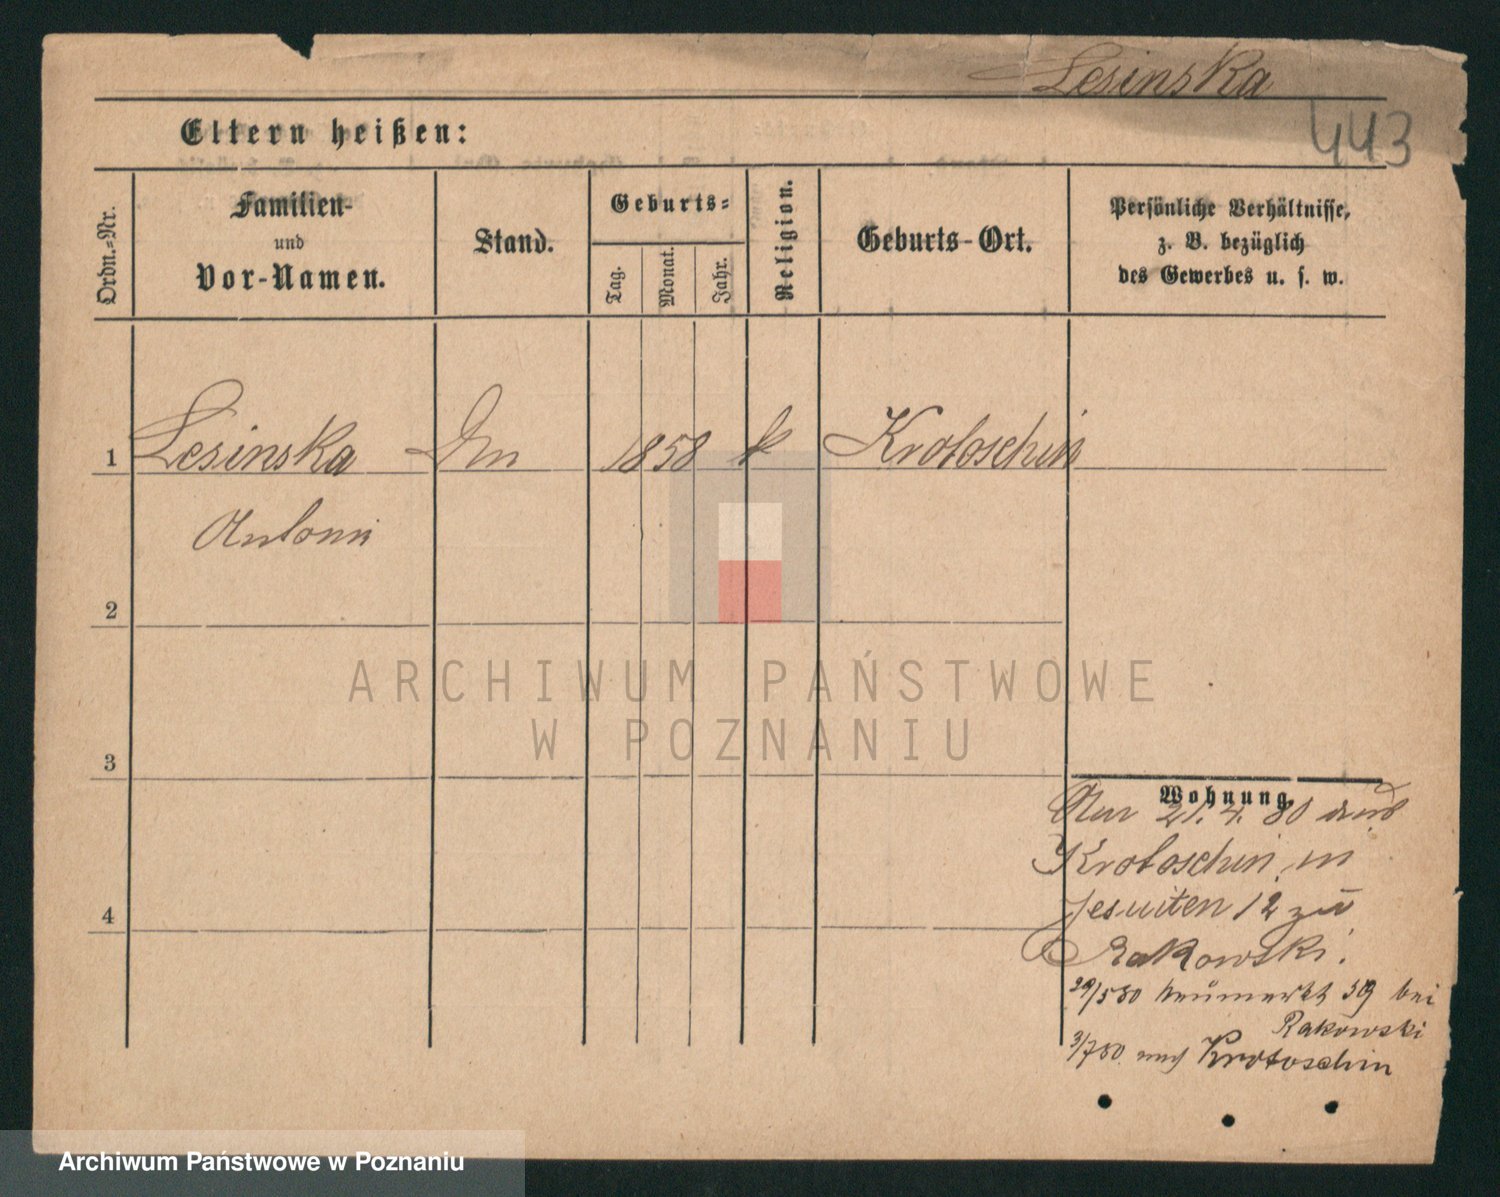 Lesinska
443
Eltern heißen:
Ordn.-Nr.
Familien-
und
Vor-Namen.
Stand.
Geburts-
Tag.
Monat.
Jahr.
Religion.
Geburts-Ort.
Persönliche Verhältnisse,
z. B. bezüglich
des Gewerbes u. s. w.
1 Lesinska 1858 k Krotoschin
Antoni
2
3
4
ARCHIWUM PAŃSTWOWE
W POZNANIU
Wohnung.
21. 4. 80 aus
Krotoschin in
Jesuiten 12 zu
Rakowski.
29/5 80 Neumarkt 39 bei
Rakowski
3/7 80 nach Krotoschin
Archiwum Państwowe w Poznaniu